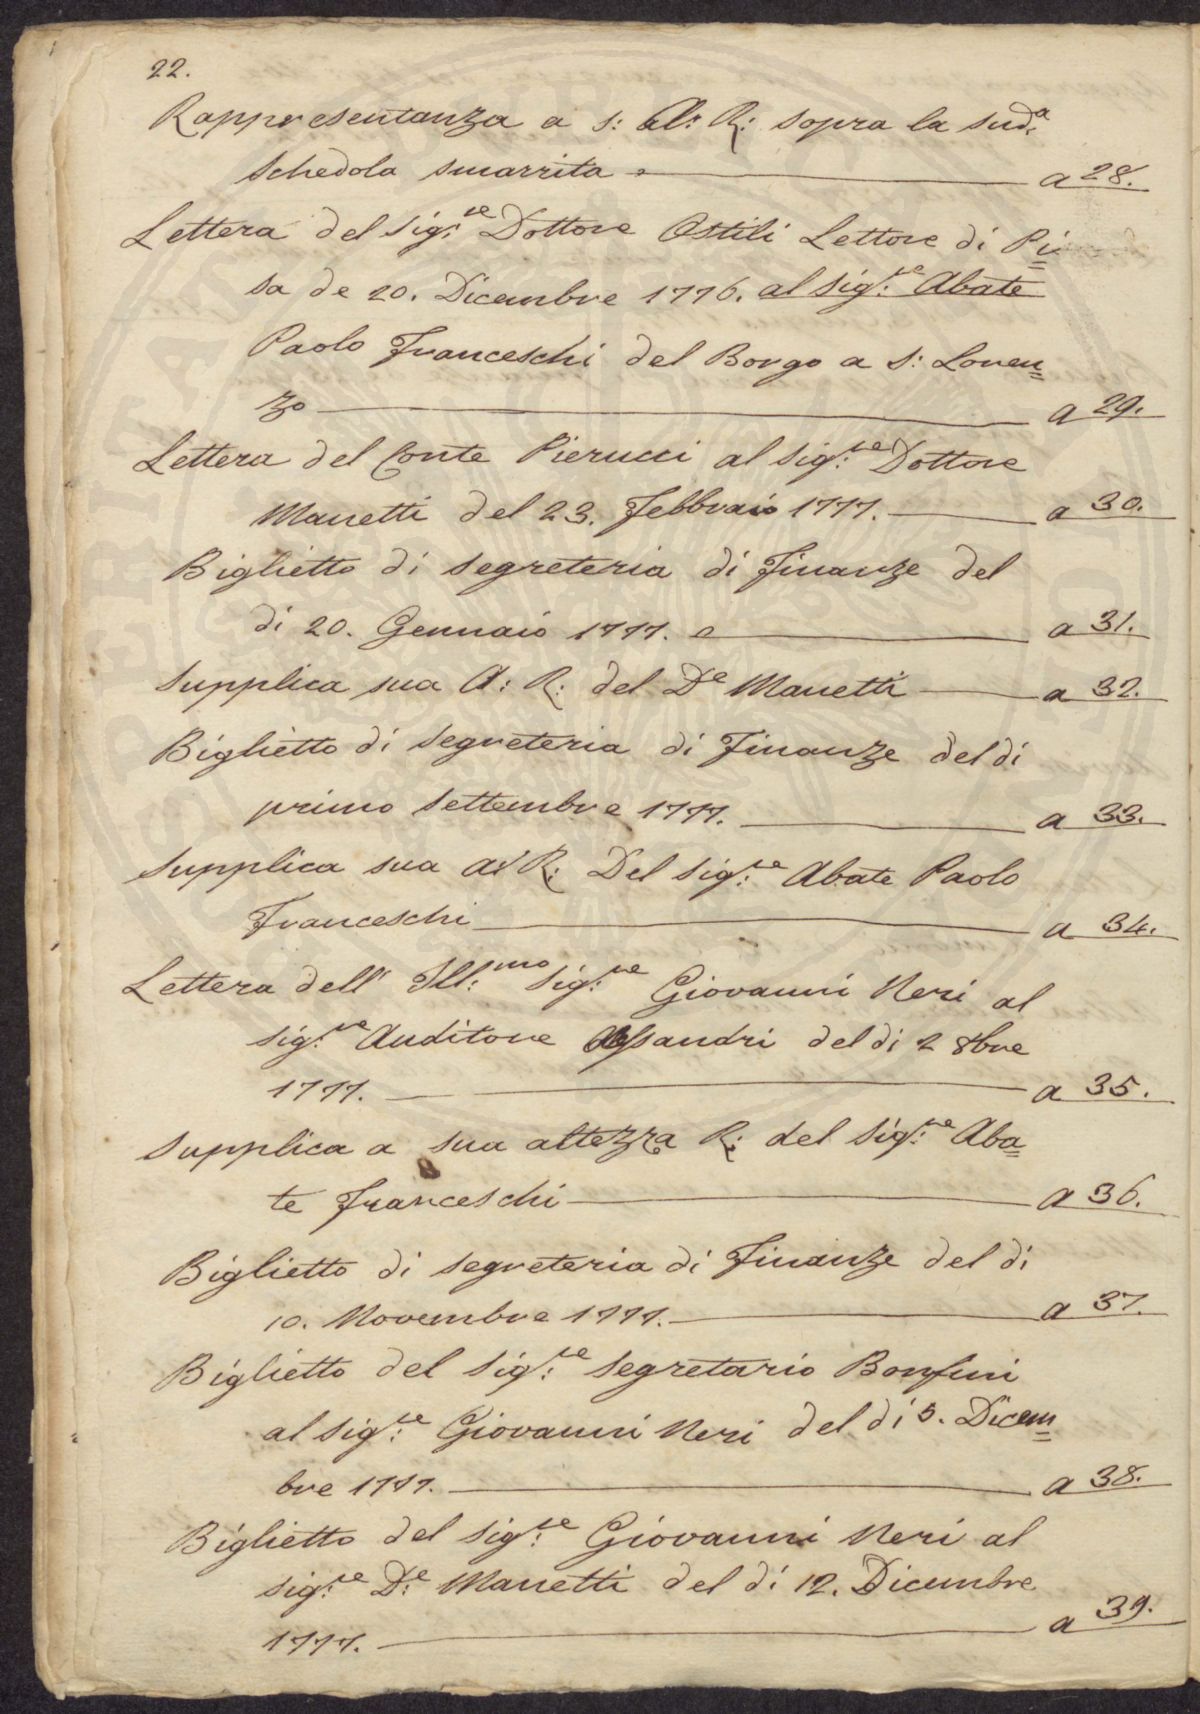 22.
Rappresentanza a S: Al: R: sopra la sud.ª
Schedola smarrita a 28.
Lettera del Sig.re Dottore Ostili Lettore di Pi=
sa de 20. Dicembre 1776. al Sig.re Abate
Paolo Franceschi del Borgo a S: Loren=
zo a 29.
Lettera del Conte Pierucci al Sig.re Dottore
Manetti del 23. Febbraio 1777. a 30.
Biglietto di Segreteria di Finanze del
di 20. Gennaio 1777. a 31.
Supplica sua A: R: del De Manetti a 32.
Biglietto di Segreteria di Finanze del di
primo Settembre 1777. a 33.
Supplica sua Al R: Del Sig.re Abate Paolo
Franceschi a 34.
Lettera dell' Ill:mo Sig.re Giovanni Neri al
Sig.re Auditore Alessandri del di 2 8bre
1777. a 35.
Supplica a sua altezza R: del Sig.re Aba=
te Franceschi a 36.
Biglietto di Segreteria di Finanze del di
10. Novembre 1777. a 37.
Biglietto del Sig.re Segretario Bonfini
al Sig.re Giovanni Neri del di 5. Dicem=
bre 1777. a 38.
Biglietto del Sig.re Giovanni Neri al
Sig.re D:e Manetti del di 12. Dicembre
1777. a 39.